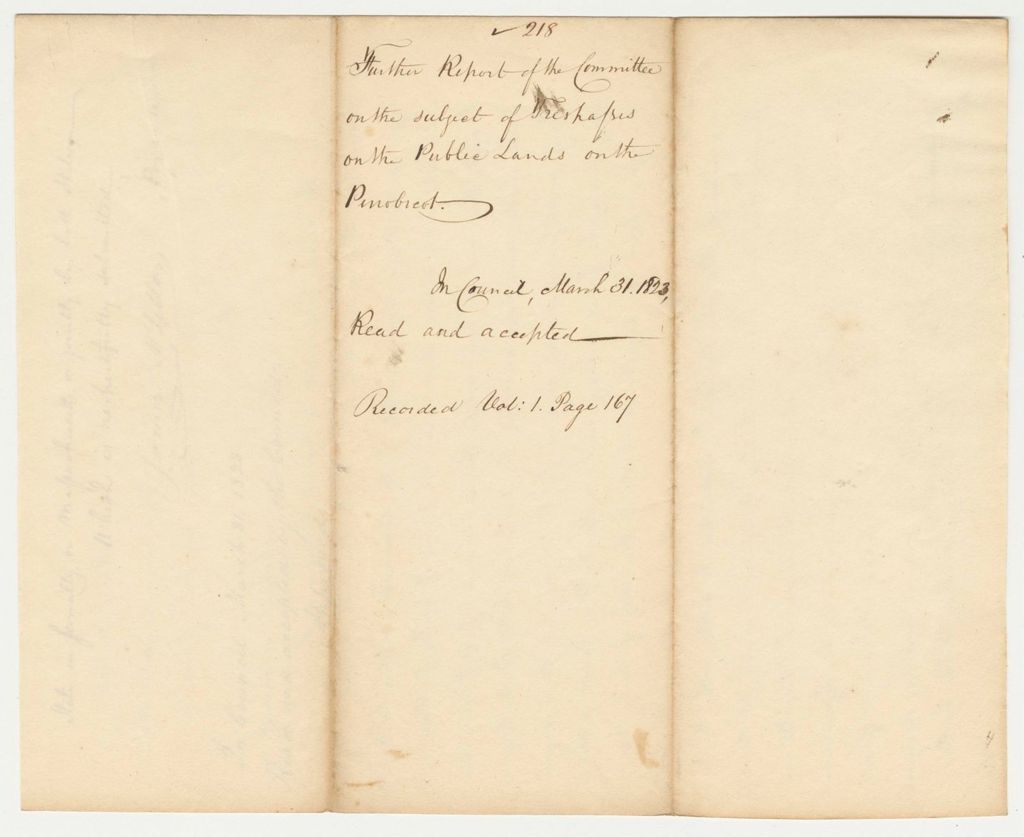 ✓ 218
Further Report of the Committee
on the subject of Treshasses
on the Public Lands on the
Penobscot.
In Council, March 31. 1823,
Read and accepted
Recorded Vol: 1. Page 167
4